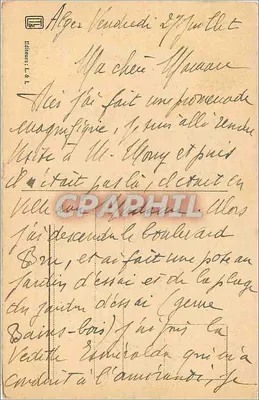 Alger Vendredi 27 juillet
Ma chère Maman
j'ai fait une promenade
magnifique, je suis allé rendre
visite à M. et puis
il n'était pas là, il était en
ville Madame. Alors
j'ai descendu le boulevard
Bru, et ai fait une pose au
jardin d'essai et de la plage
du jardin d'essai (genre
Bains-bois) j'ai pris la
Vedette Esméralda qui m'a
conduit à l'amirauté, je
Editeurs: L. & L.
CPAPHIL